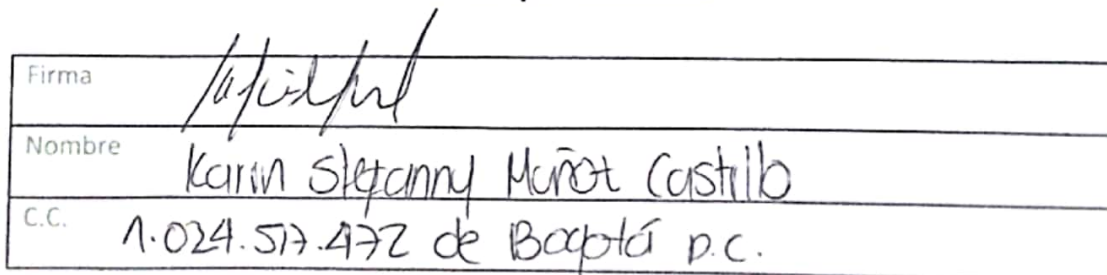 Firma
Nombre Karin Stefanny Muñoz Castillo
C.C. 1.024.517.472 de Bogotá D.C.